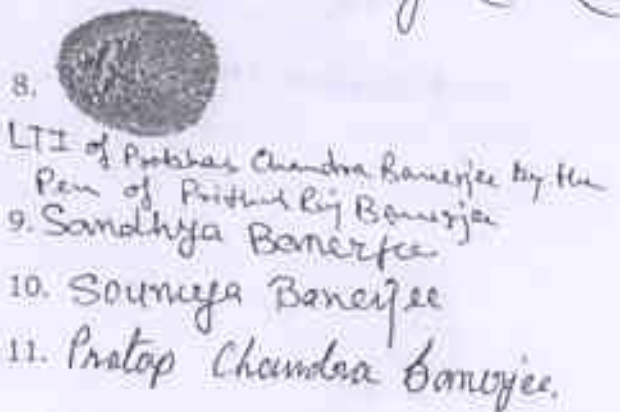 8.
LTI of Prabhas Chandra Banerjee by the
Pen of Prithwi Raj Banerjee
9. Sandhya Banerjee
10. Soumya Banerjee
11. Pratap Chandra Banerjee.